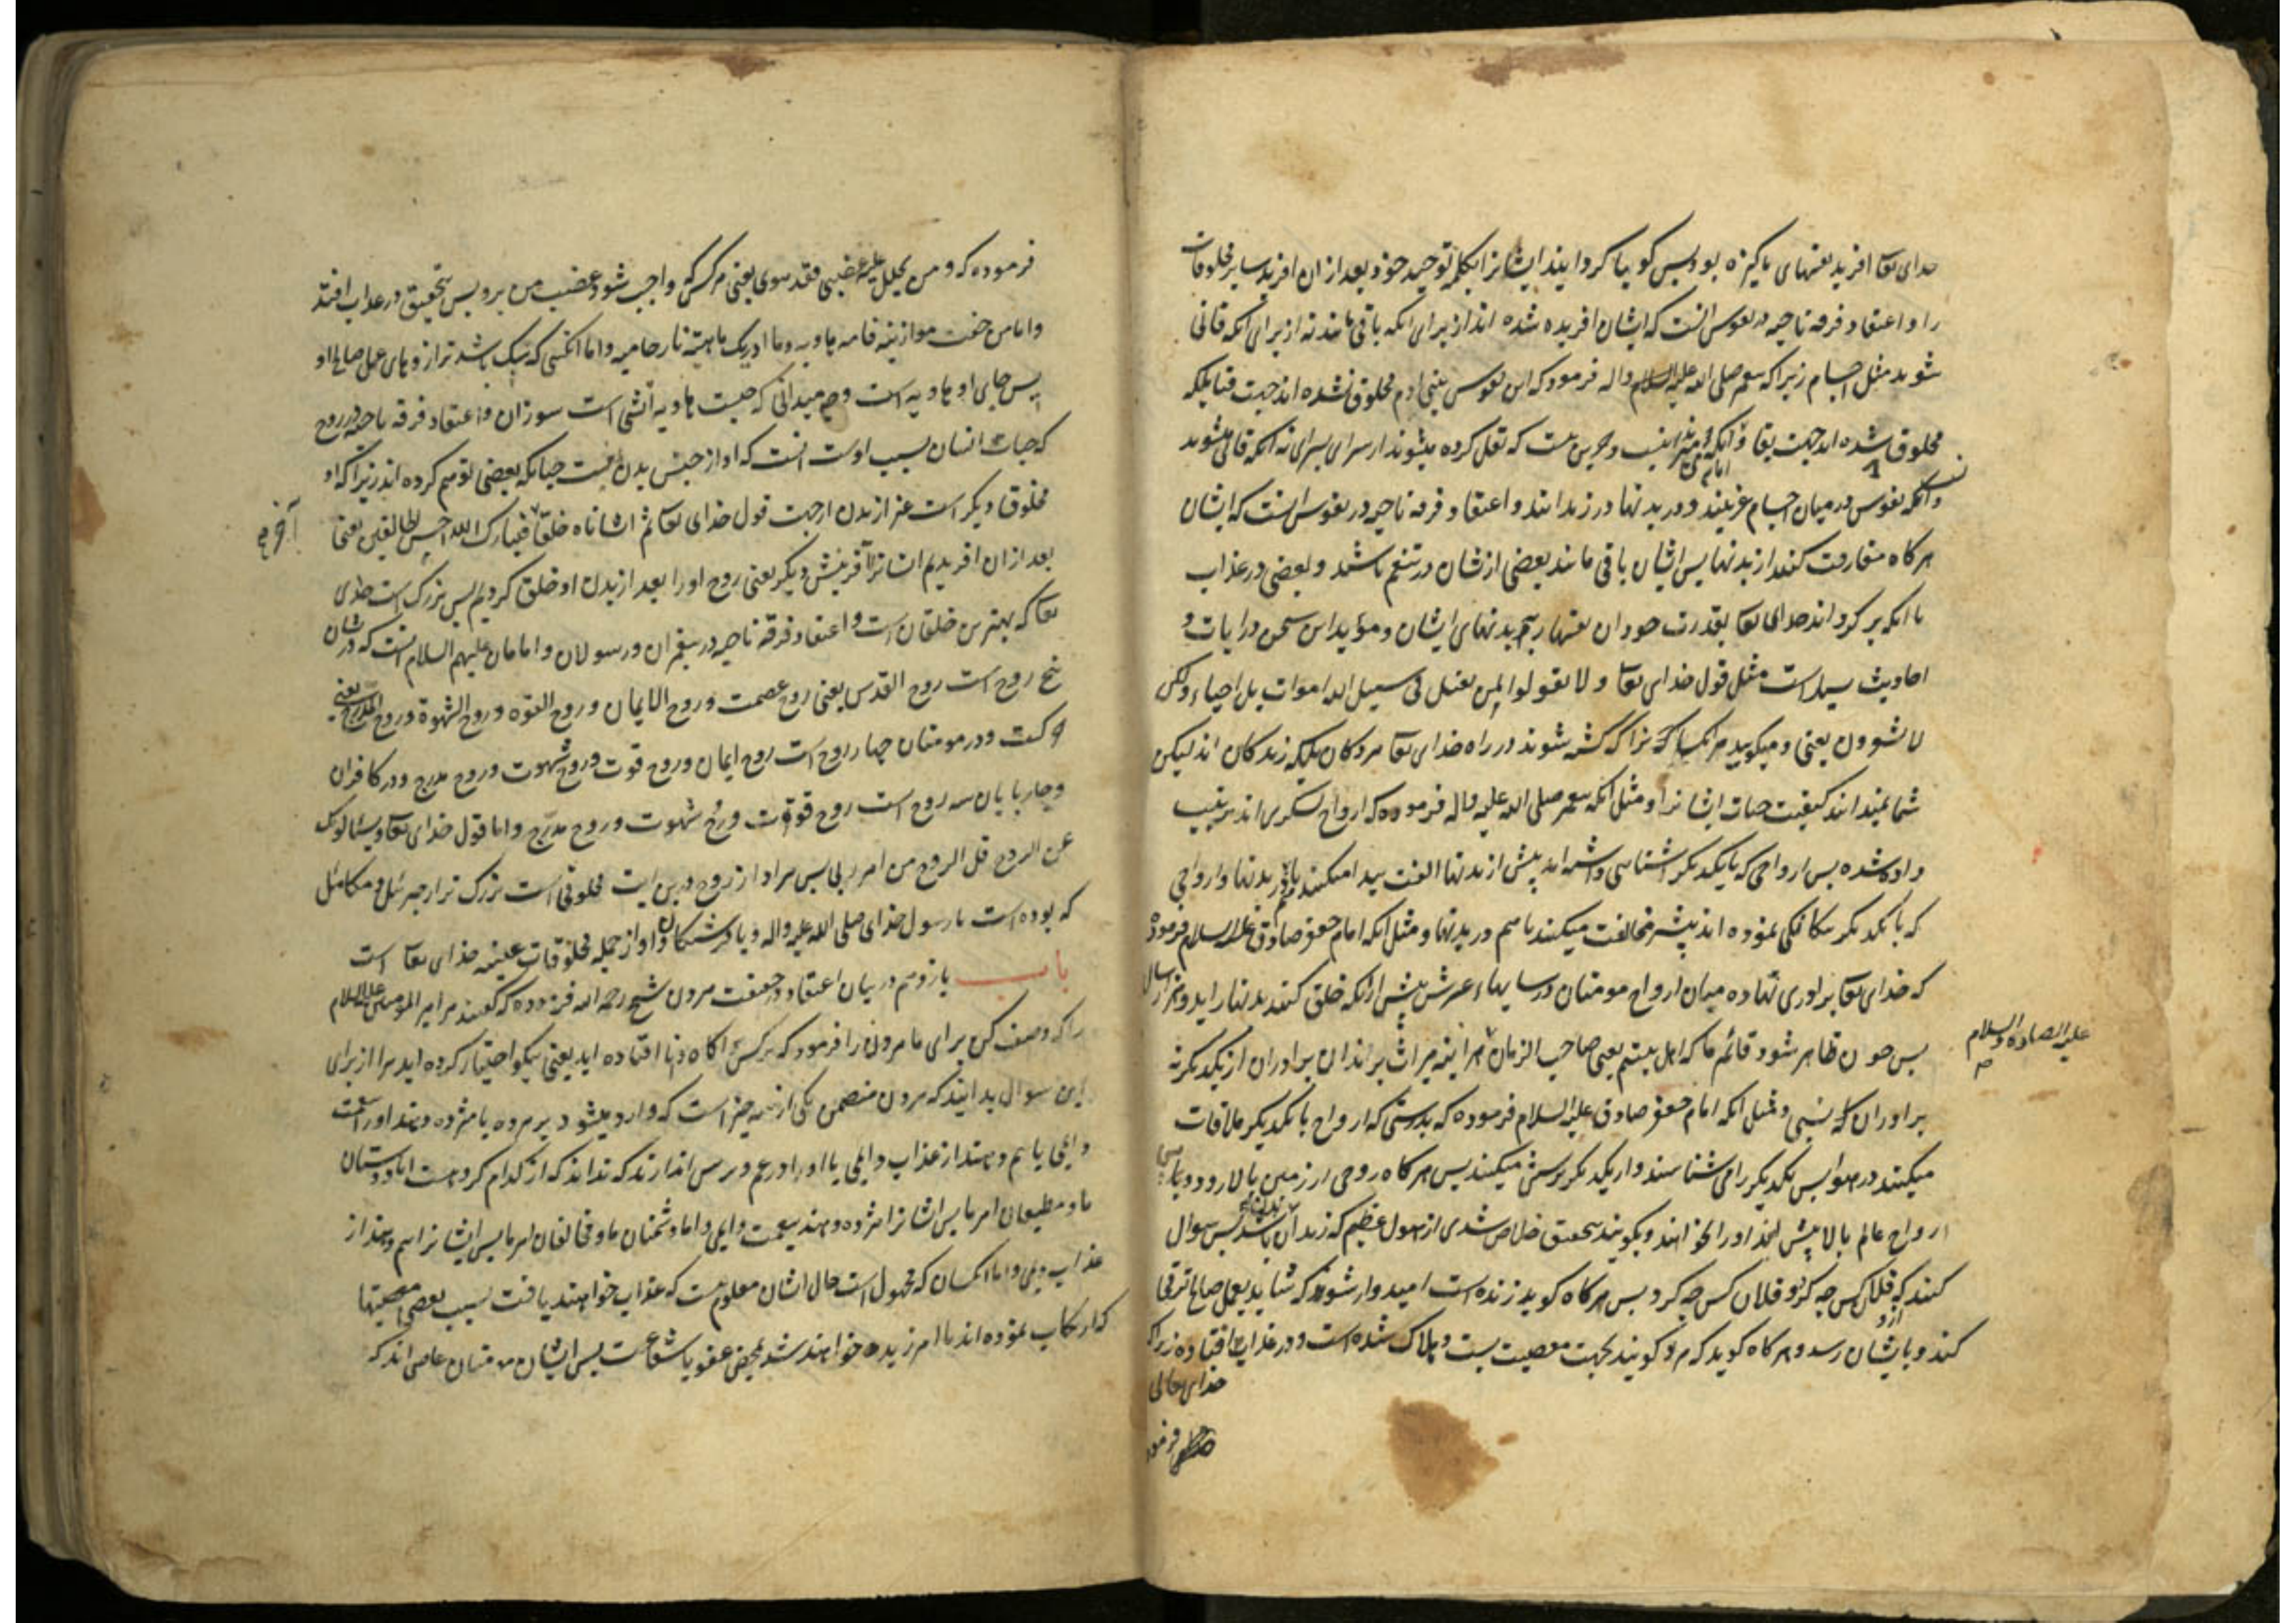 خدای تعا افرید نفسهای پاکیزه بود پس کویا کردانید ایشانرا بکلمه توحید خود و بعد از ان افرید سایر مخلوقات
را و اعتقاد فرقه ناجیه در نفوس انست که ایشان افریده شده اند از برای انکه باقی مانند نه از برای انکه فانی
شوند مثل اجسام زیرا که پیغمبر صلی الله علیه و اله فرمود که این نفوس یعنی ادم مخلوق نشده اند جهت فنا بلکه
مخلوق شده اند جهت بقا و انکه نیست که نقل کرده میشوند از سرای بسرای نه انکه فانی میشوند
و انکه نفوس در میان اجسام غریبند و در بدنها در زندانند و اعتقاد فرقه ناجیه در نفوس انست که ایشان
هرکاه مفارقت کنند از بدنها پس ایشان باقی مانند بعضی ازیشان در تنعم باشند و بعضی در عذاب
تا انکه بر کرداند خدای تعا بقدرت خود ان نفسها را بجه بدنهای ایشان و مؤید این سخن در ایات و
احادیث بسیار است مثل قول خدای تعا و لا تقولوا لمن یقتل فی سبیل الله اموات بل احیاء ولکن
لا تشعرون یعنی و میکویید مر انکسانی را که کشته شوند در راه خدای تعا مردکان بلکه زندکان اند لیکن
شما نمیدانند کیفیت حیات ایشانرا و مثل انکه پیغمبر صلی الله علیه و اله فرموده که ارواح لشکری اند ترتیب
داده شده پس ارواحی که بایکدیکر اشنایی داشته اند پیش از بدنها الفت پیدا میکنند باهم در بدنها و ارواحی
که بایکدیکر بیکانکی نموده اند پیشتر مخالفت میکنند باهم در بدنها و مثل انکه امام جعفر صادق علیه السلام فرموده
که خدای تعا برادری نهاده میان ارواح مومنان در سایهاء عرش پیش از انکه خلق کنند بدنها را بدو هزار سال
پس چون ظاهر شود قائم ما که اهل بیتیم یعنی صاحب الزمان هراینه میراث برند ان برادران از یکدیکر نه
علیه الصلوة والسلام
برادران نسبی و مثل انکه امام جعفر صادق علیه السلام فرموده که بدرستی که ارواح بایکدیکر ملاقات
میکنند در هوا پس یکدیکر را می شناسند و از یکدیکر پرسش میکنند پس هرکاه روحی از زمین بالا رود
ارواح عالم بالا پیش اند او را خوانند و بکویند بتحقیق خلاص شدی از هول عظیم که زندان باشد پس سوال
کنند که فلان کس چه کرد و فلان کس چه کرد پس هرکاه کوید زنده است امیدوار شوند که شاید بعمل صالح ترقی
کند و بایشان رسد و هرکاه کوید که مرد کویند بجهت معصیت پست و هلاک شده است و در عذاب افتاده زیرا که
خدای تعالی
فرمود
فرموده که و من یحلل علیه غضبی فقد هوی یعنی هرکس که واجب شود غضب من برو پس بتحقیق در عذاب افتد
و اما من خفت موازینه فامه هاویه وما ادریک ماهیه نار حامیه و اما انکسی که سبک باشد ترازوهای عمل صالح او
پس جای او هاویه است و چه میدانی که چیست هاویه آتشی است سوزان و اعتقاد فرقه ناجیه در روح
که حیات انسان بسبب اوست انست که او از جنس بدن نیست چنانکه بعضی توهم کرده اند زیرا که او
مخلوق دیکر است غیر از بدن از جهت قول خدای تعا ثم انشاناه خلقا فتبارک الله احسن الخالقین یعنی
آخر
بعد از ان افریدیم انسانرا آفرینش دیکر یعنی روح او را بعد از بدن او خلق کردیم پس بزرک است خدای
تعا که بهترین خلقان است و اعتقاد فرقه ناجیه در پیغمبران و رسولان و امامان علیهم السلام انست که در شان
پنج روح است روح القدس یعنی روح عصمت و روح الایمان و روح القوه و روح الشهوة و روح المدرج یعنی
حرکت و در مومنان چهار روح است روح ایمان و روح قوت و روح شهوت و روح مدرج و در کافران
و چارپایان سه روح است روح قوت و روح شهوت و روح مدرج و اما قول خدای تعا و یسئلونک
عن الروح قل الروح من امر ربی پس مراد از روح درین ایت مخلوقی است بزرک تر از جبرئیل و میکائیل
که بوده است با رسول خدای صلی الله علیه و اله و با فرشتکان و او از جمله مخلوقات خدای تعا است
باب یازدهم در بیان اعتقاد در حقیقت مردن شیخ رحمه الله فرموده که کفتند مر امیر المومنین علیه السلام
را که وصف کن برای ما مردن را فرمود که بر کسی اکاه و دانا افتاده اید یعنی نیکو اختیار کرده اید مرا از برای
این سوال بدانید که مردن متضمن یکی از سه چیز است که وارد میشود بر مرده یا مژده دهند او را بنعمت
دایمی یا بیم دهند از عذاب دایمی یا او را در غم و ترس اندازند که نداند که از کدام کروهست اما دوستان
ما و مطیعان امر ما پس ایشانرا مژده دهند بنعمت دایمی و اما دشمنان ما و مخالفان امر ما پس ایشانرا بیم دهند از
عذاب دایمی و اما انکسان که مجهول است حال ایشان معلوم نیست که عذاب خواهند یافت بسبب بعضی معصیتها
که ارتکاب نموده اند یا امرزیده خواهند شد بمحض عفو یا شفاعت پس ایشان مومنان عاصی اند که